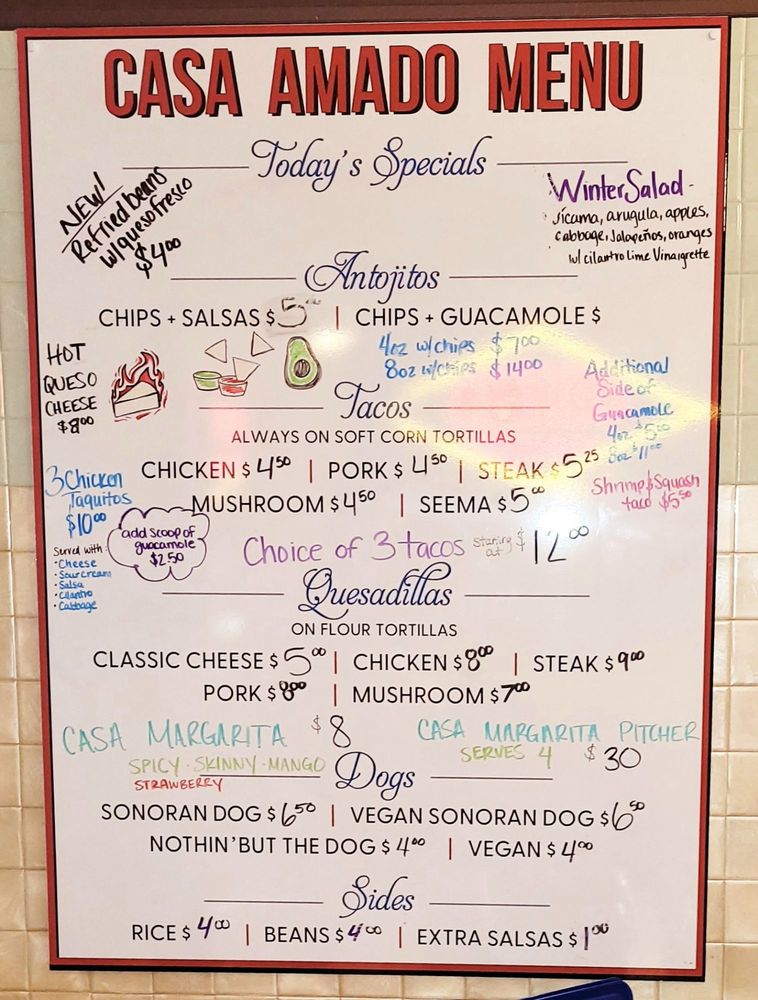 CASA AMADO MENU
Today's Specials
NEW!
Refried beans
w/queso fresco
$4.00
Winter Salad -
Jicama, arugula, apples,
cabbage, Jalapeños, oranges
w/ cilantro lime Vinaigrette
Antojitos
CHIPS + SALSAS $5.00 | CHIPS + GUACAMOLE $
4oz w/chips $7.00
8oz w/chips $14.00
HOT
QUESO
CHEESE
$8.00
Additional
Side of
Guacamole
4oz $5.00
8oz $11.00
Tacos
ALWAYS ON SOFT CORN TORTILLAS
CHICKEN $4.50 | PORK $4.50 | STEAK $5.25
MUSHROOM $4.50 | SEEMA $5.00
Shrimp & Squash
taco $5.50
3 Chicken
Taquitos
$10.00
Served with:
• Cheese
• Sour cream
• Salsa
• Cilantro
• Cabbage
add scoop of
guacamole
$2.50
Choice of 3 tacos starting at $12.00
Quesadillas
ON FLOUR TORTILLAS
CLASSIC CHEESE $5.00 | CHICKEN $8.00 | STEAK $9.00
PORK $8.00 | MUSHROOM $7.00
CASA MARGARITA $8
SPICY · SKINNY · MANGO
STRAWBERRY
CASA MARGARITA PITCHER
SERVES 4 $30
Dogs
SONORAN DOG $6.50 | VEGAN SONORAN DOG $6.50
NOTHIN' BUT THE DOG $4.00 | VEGAN $4.00
Sides
RICE $4.00 | BEANS $4.00 | EXTRA SALSAS $1.00